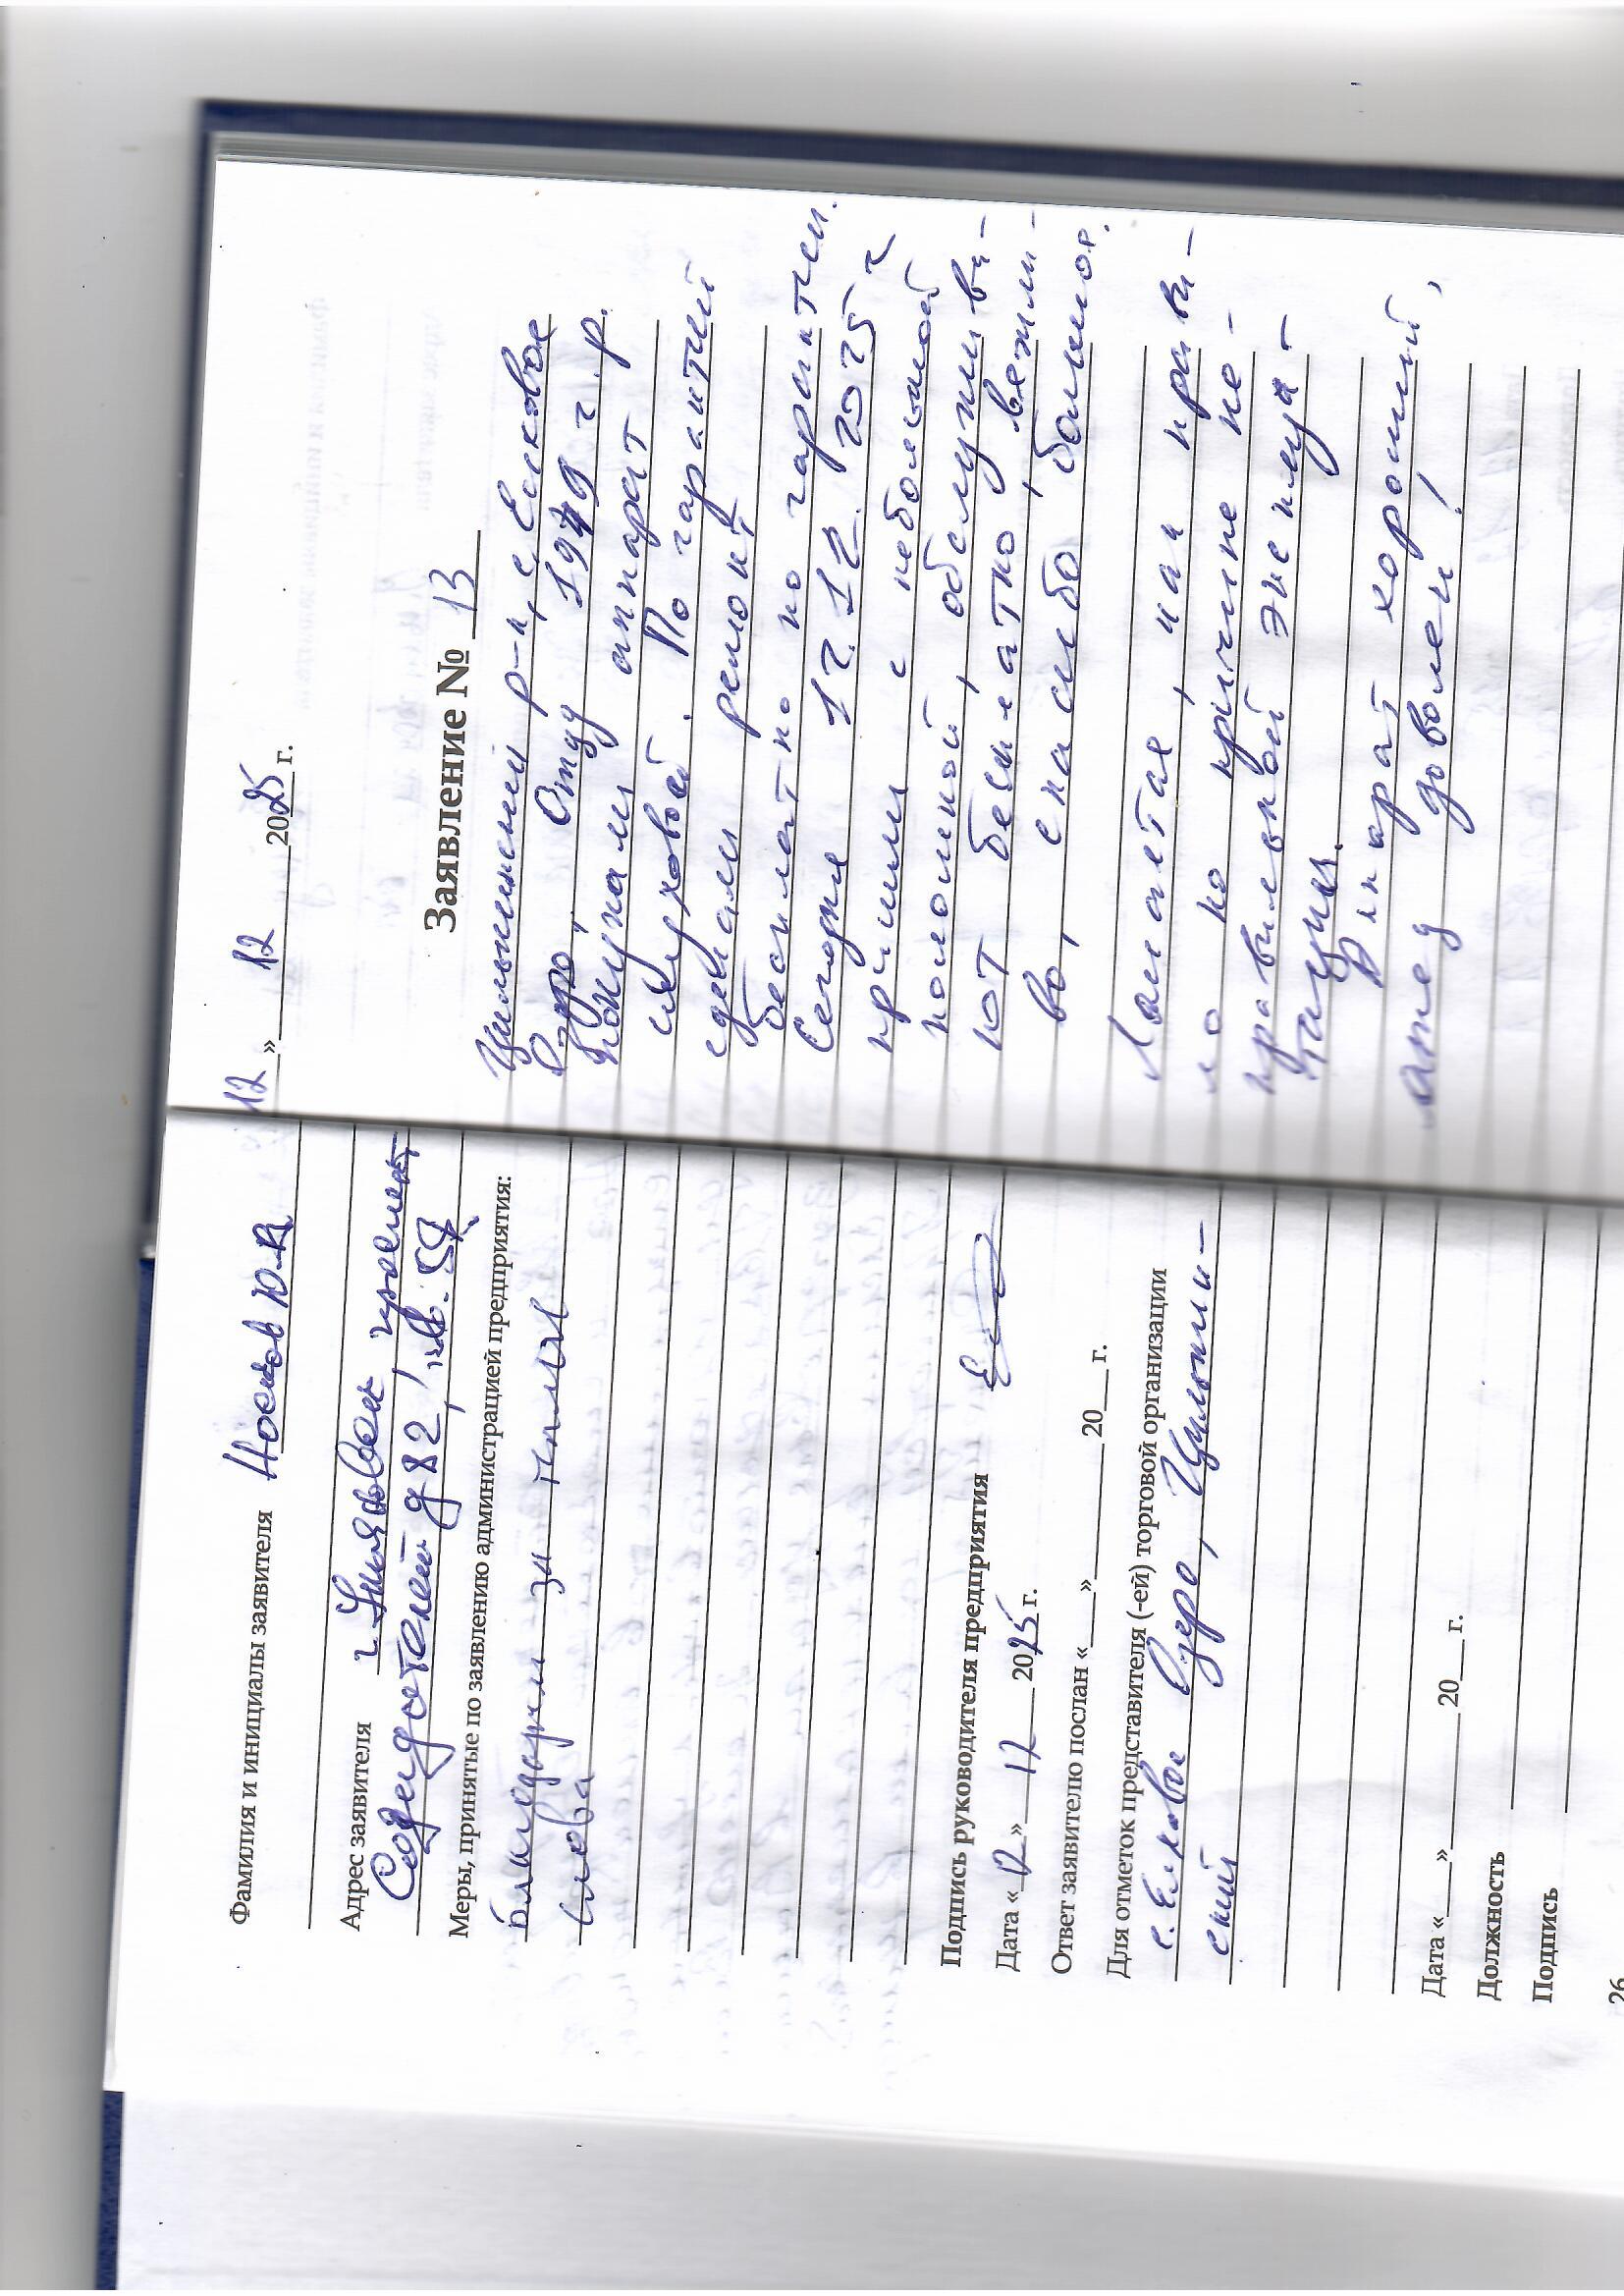 Фамилия и инициалы заявителя Носков Ю.А
Адрес заявителя г. Ульяновск проспект
Созидателей д 82, кв. 54
Меры, принятые по заявлению администрацией предприятия:
Благодарим за тёплые
слова
Подпись руководителя предприятия
Дата «12» 12 2025 г.
Ответ заявителю послан «__» ____ 20__ г.
Для отметок представителя (-ей) торговой организации
с. Елховое Озеро, Цильнин-
ский
Дата «__» ____ 20__ г.
Должность
Подпись
26
12 » 12 2025 г.
Заявление № 13
Цильнинский р-н, с Елховое
Озеро, Отцу 1949 г.р.
покупали аппарат
слуховой. По гарантии
сделали ремонт
бесплатно по гарантии.
Сегодня 12.12.2025 г
пришли с небольшой
поломкой, обслужива-
ют бесплатно, вежли-
во, спасибо большое.
поломка
ло по причине не-
правильной эксплуа-
тации.
Аппарат хороший,
отец доволен!